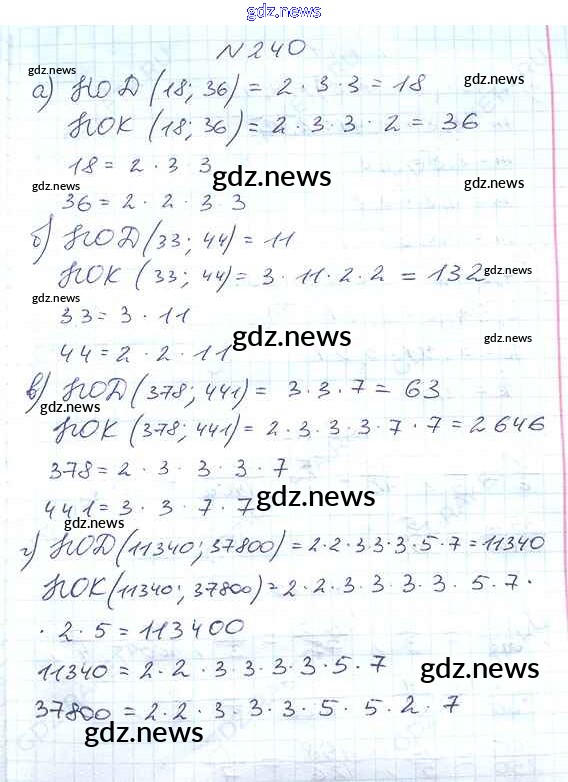 gdz.news
N 240
gdz.news
gdz.news
а) НОД (18; 36) = 2 · 3 · 3 = 18
НОК (18; 36) = 2 · 3 · 3 · 2 = 36
18 = 2 · 3 · 3
gdz.news
gdz.news
gdz.news
36 = 2 · 2 · 3 · 3
б) НОД (33; 44) = 11
НОК (33; 44) = 3 · 11 · 2 · 2 = 132
gdz.news
gdz.news
33 = 3 · 11
gdz.news
44 = 2 · 2 · 11
в) НОД (378; 441) = 3 · 3 · 7 = 63
gdz.news
НОК (378; 441) = 2 · 3 · 3 · 3 · 7 · 7 = 2646
378 = 2 · 3 · 3 · 3 · 7
441 = 3 · 3 · 7 · 7
gdz.news
gdz.news
г) НОД (11340; 37800) = 2 · 2 · 3 3 · 3 · 5 · 7 = 11340
НОК (11340; 37800) = 2 · 2 · 3 · 3 · 3 · 3 · 5 · 7 ·
· 2 · 5 = 113400
11340 = 2 · 2 · 3 · 3 · 3 · 3 · 5 · 7
gdz.news
37800 = 2 · 2 · 3 · 3 · 3 · 5 · 5 · 2 · 7
gdz.news